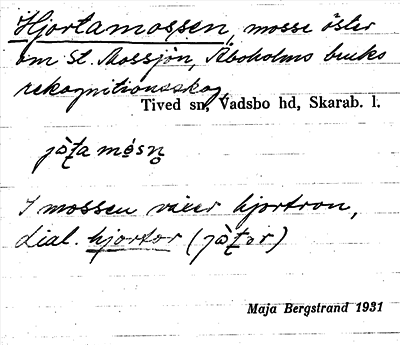 Hjortamossen, mosse öster
om St. Mossjön, Åboholms bruks
rekognitionsskog,
Tived sn, Vadsbo hd, Skarab. l.
I mossen växer hjortron,
dial. hjortor
Maja Bergstrand 1931